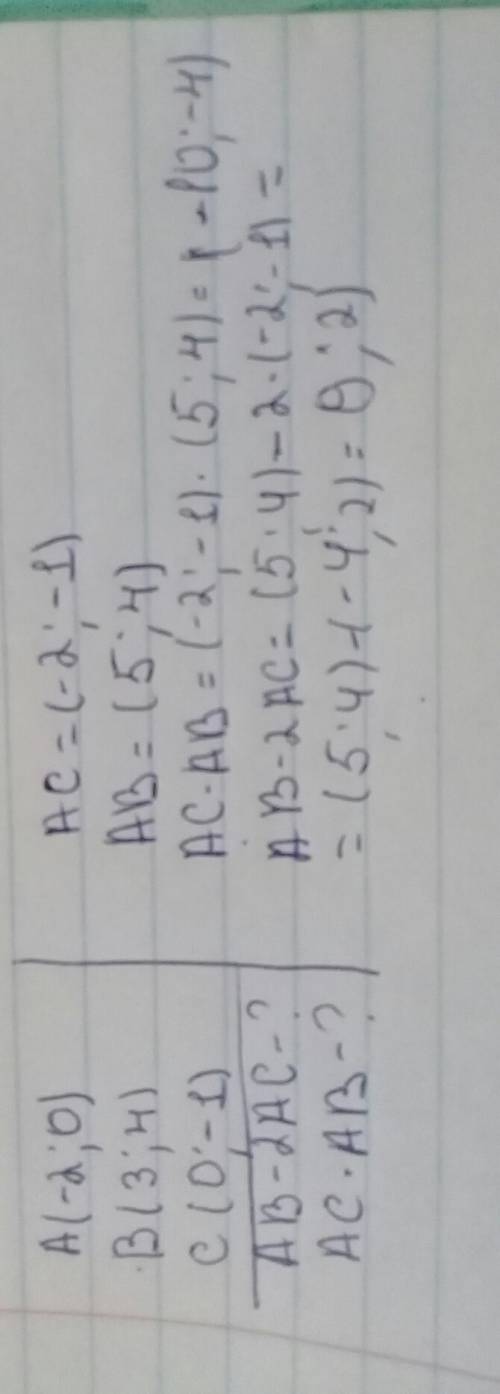 A(-2;0)
B(3;4)
C(0;-1)
AB-2AC-?
AC·AB-?
AC=(-2;-1)
AB=(5;4)
AC·AB=(-2;-1)·(5;4)=(-10;-4)
AB-2AC=(5;4)-2·(-2;-1)=
=(5;4)-(-4;2)=